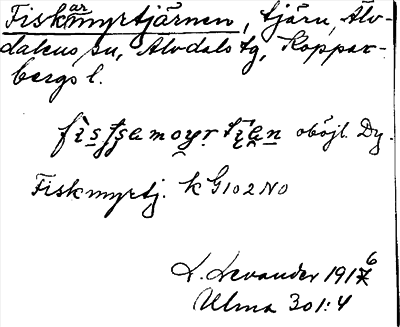 Fiskarmyrtjärnen, tjärn, Älv-
dalens sn, Älvdals tg, Koppar-
bergs l.
oböjl. Dy.
Fiskmyrtj. k G102 NO
L. Levander 1916
Ulma 301:4